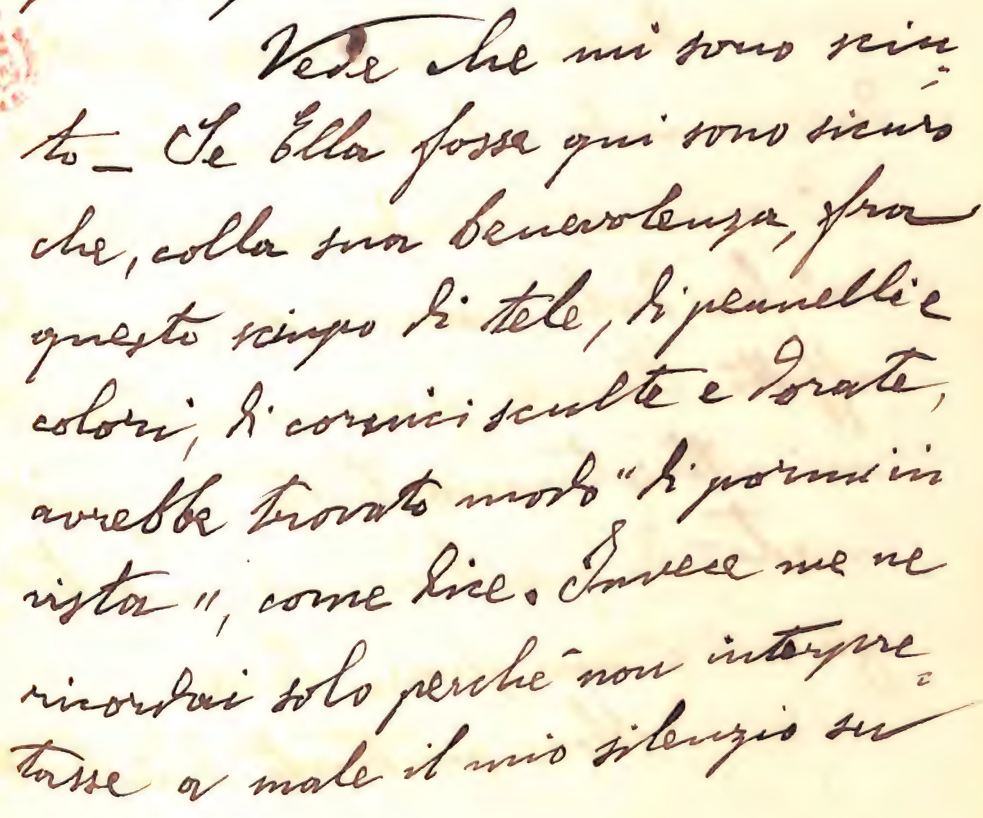 Vede che mi sono
Se Ella fosse qui sono sicuro
che, colla sua benevolenza, fra
questo sciupo di tele, di pennelli e
colori, di cornici sculte e dorate,
avrebbe trovato modo "di pormi in
vista", come dice. Invece me ne
ricordai solo perchè non interpre=
tasse a male il mio silenzio su